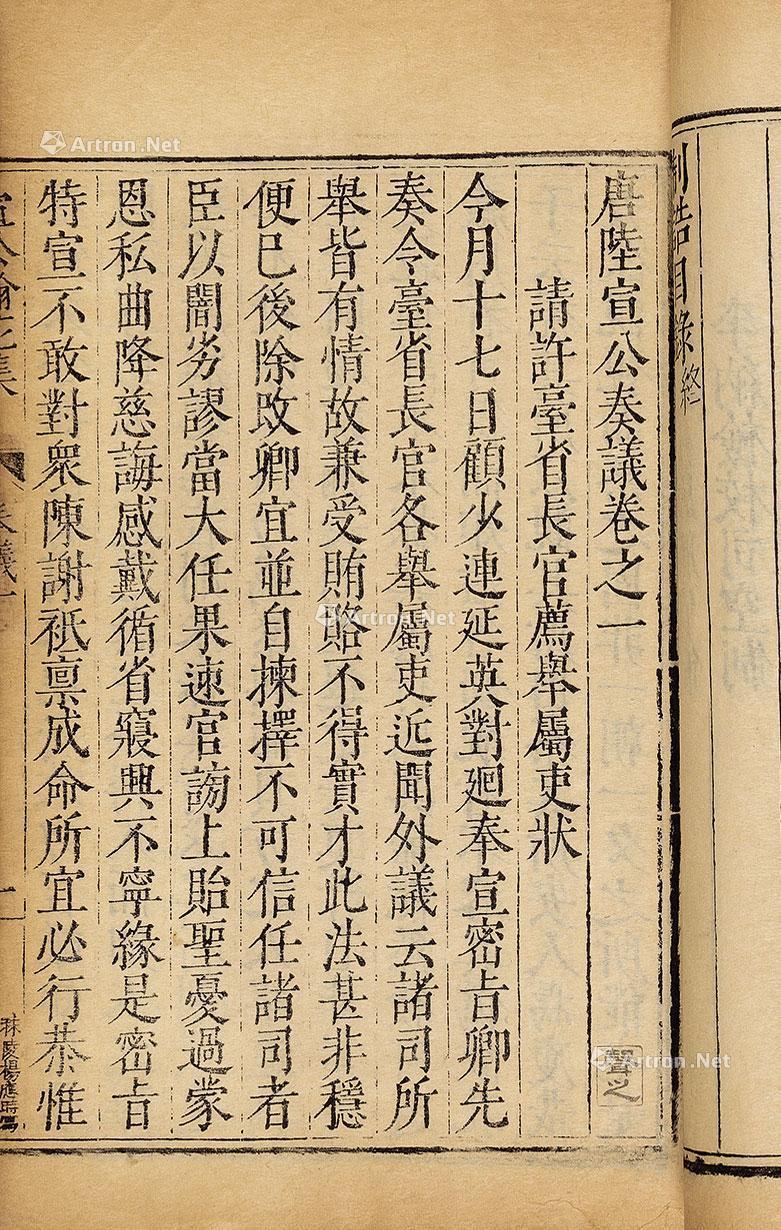 制誥目錄終
唐陸宣公奏議卷之一
聲之
請許臺省長官薦舉屬吏狀
今月十七日顧少連延英對廻奉宣密旨卿先
奏令臺省長官各舉屬吏近聞外議云諸司所
舉皆有情故兼受賄賂不得實才此法甚非穩
便已後除改卿宜並自揀擇不可信任諸司者
臣以闇劣謬當大任果速官謗上貽聖憂過蒙
恩私曲降慈誨感戴循省寢興不寧緣是密旨
特宣不敢對衆陳謝祗禀成命所宜必行恭惟
宣公翰苑集 奏議一 一
秣陵楊應時寫
Artron.Net
Artron.Net
Artron.Net